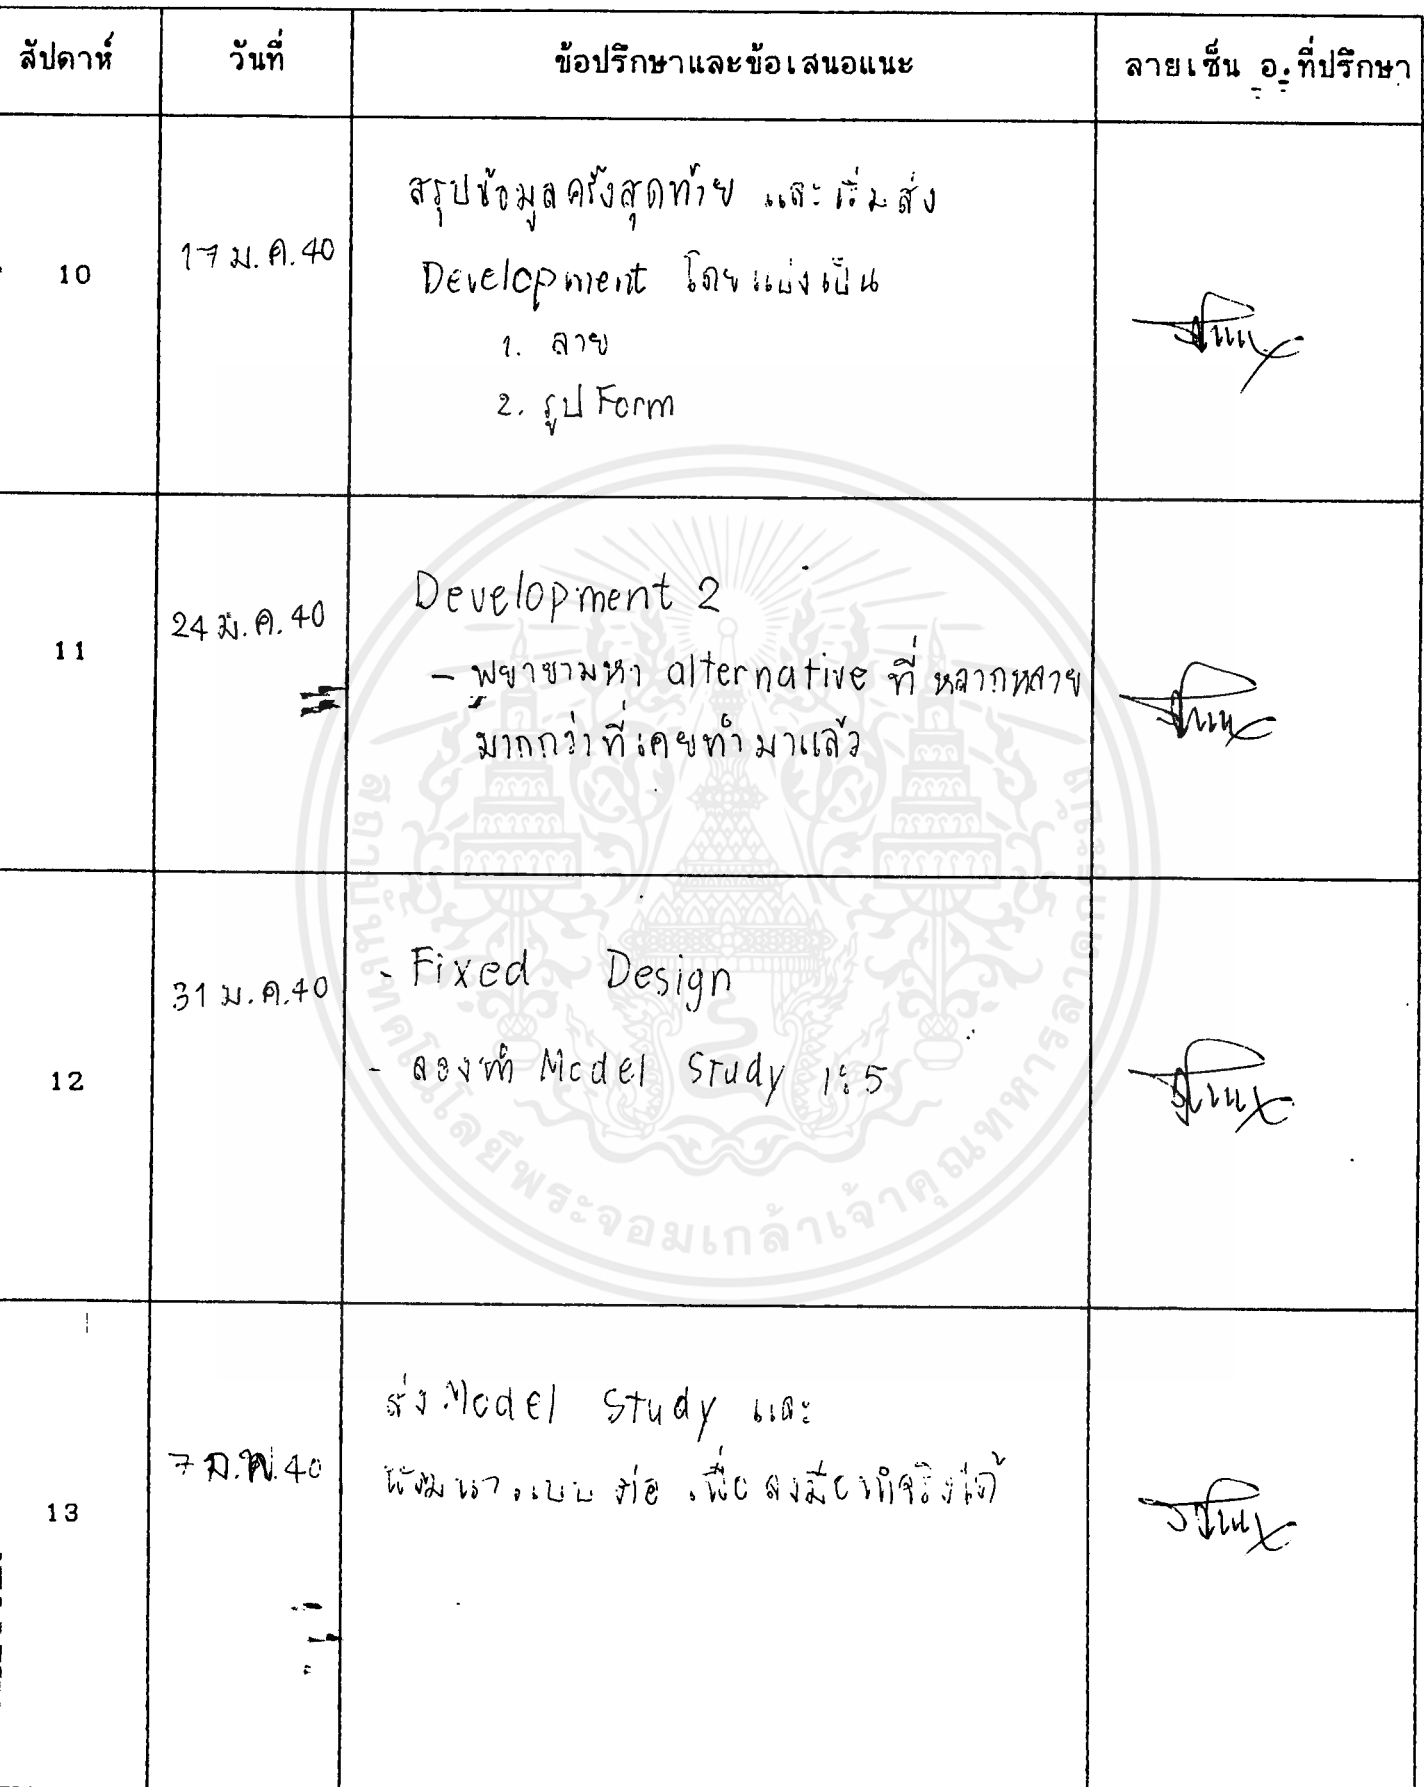 สัปดาห์ วันที่ ข้อปรึกษาและข้อเสนอแนะ ลายเซ็น อ.ที่ปรึกษา
10 17 ม.ค.40 สรุปข้อมูลครั้งสุดท้าย และเริ่มส่ง
Development โดยแบ่งเป็น
1. ลาย
2. รูป Form
11 24 ม.ค.40 Development 2
- พยายามหา alternative ที่ หลากหลาย
มากกว่าที่เคยทำมาแล้ว
12 31 ม.ค.40 - Fixed Design
- ลองทำ Model Study 1:5
13 7 ก.พ.40 ส่ง Model Study และ
พัฒนาแบบต่อ เพื่อลงมือทำจริงได้
สถาบันเทคโนโลยีพระจอมเกล้าเจ้าคุณทหารลาดกระบัง